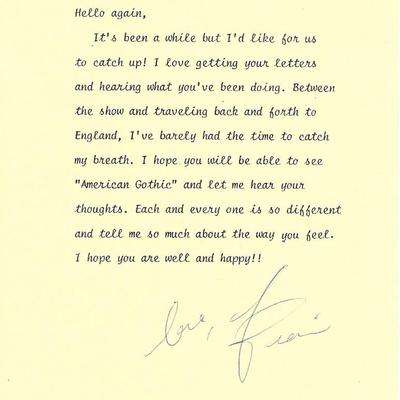 Hello again,
It's been a while but I'd like for us
to catch up! I love getting your letters
and hearing what you've been doing. Between
the show and traveling back and forth to
England, I've barely had the time to catch
my breath. I hope you will be able to see
"American Gothic" and let me hear your
thoughts. Each and every one is so different
and tell me so much about the way you feel.
I hope you are well and happy!!
love,